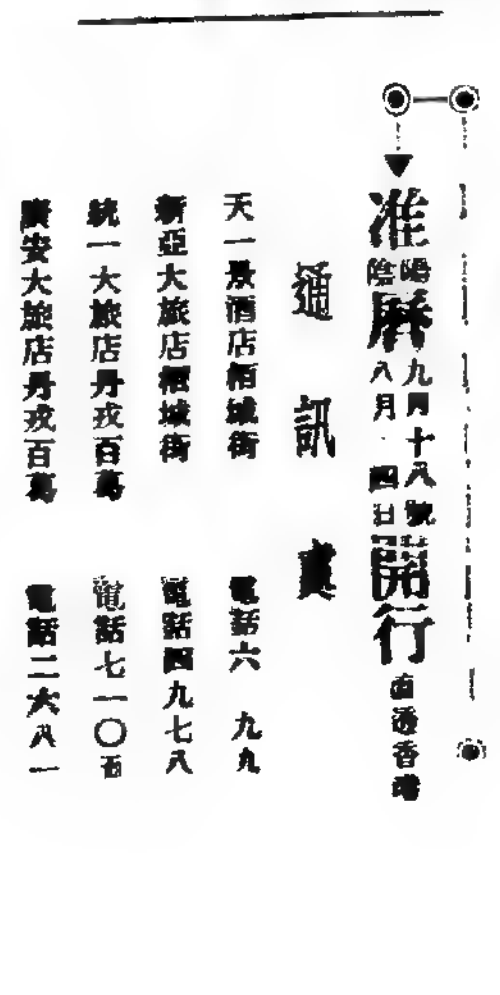 准陽陰曆九月十八號八月四日開行直透香港
通訊處
天一景酒店栢城街 電話六九九
新亞大旅店栢城街 電話四九七八
統一大旅店丹戎百葛 電話七一〇五
廣安大旅店丹戎百葛 電話二六八一